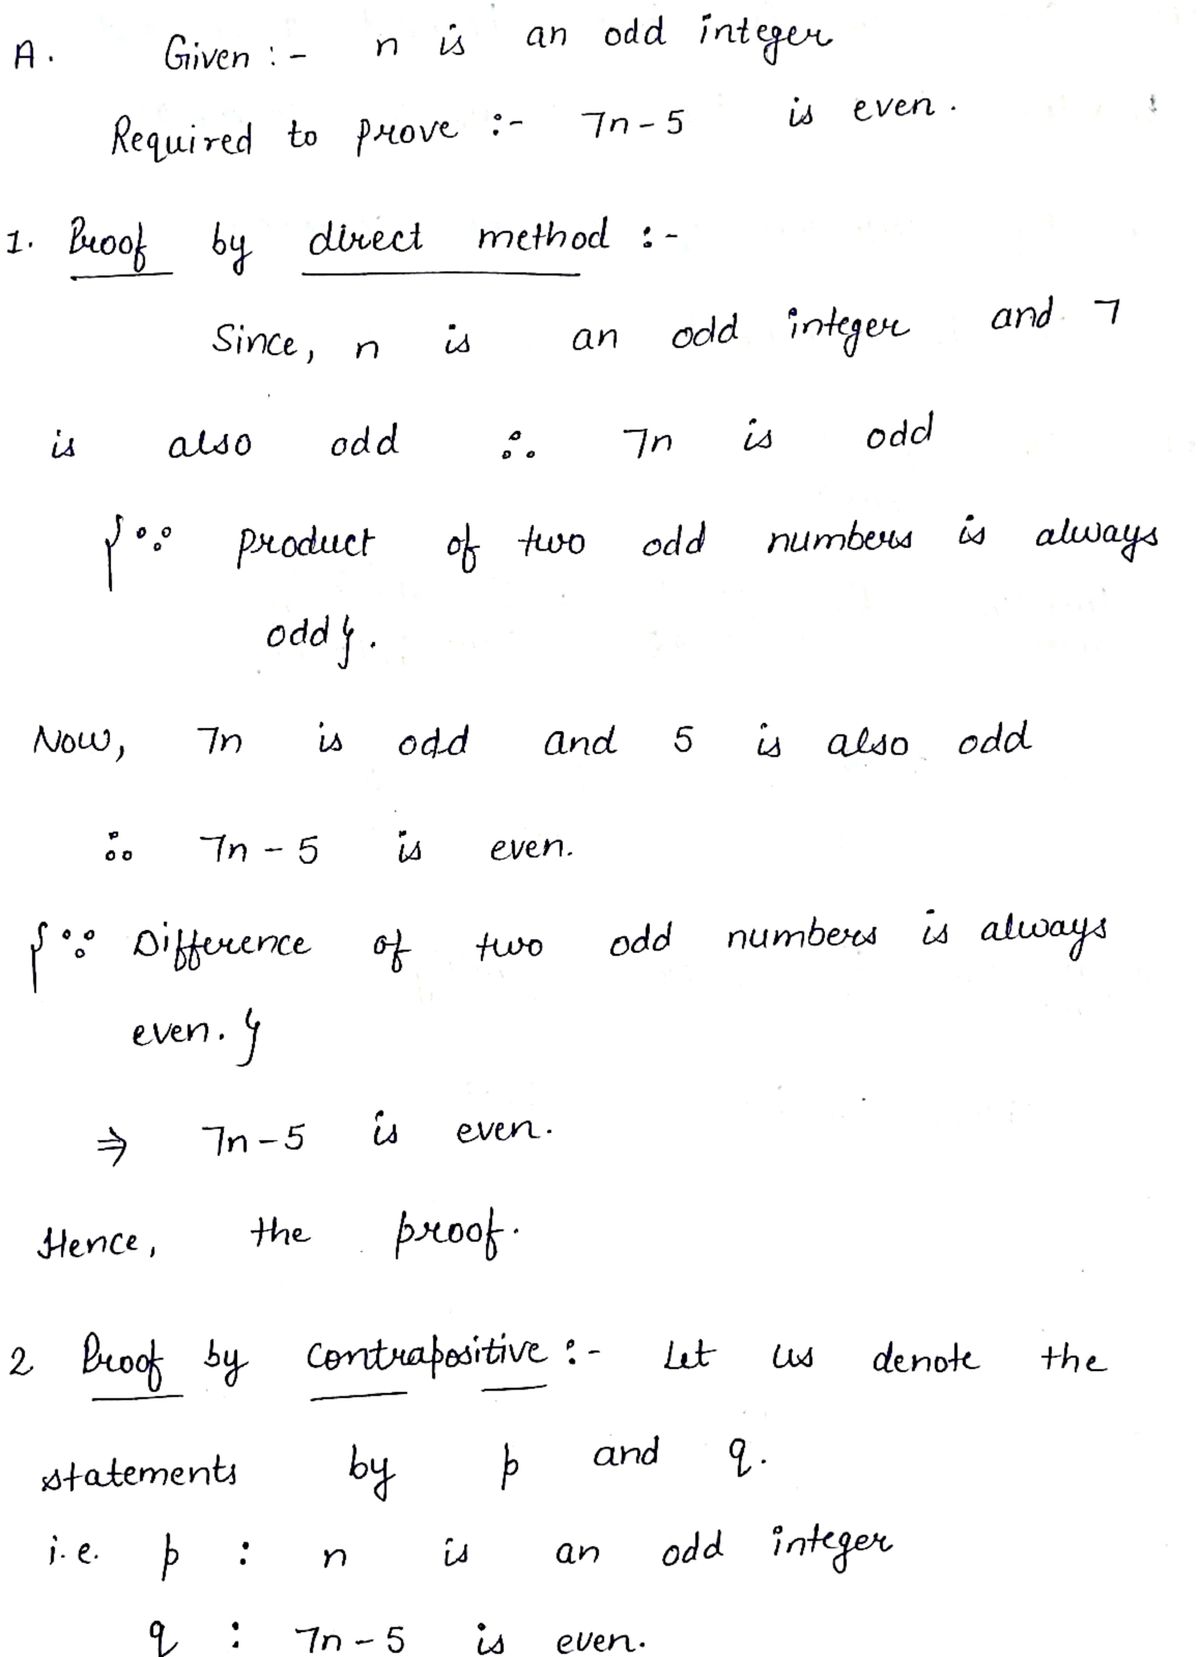 A. Given :- n is an odd integer
Required to prove :- 7n-5 is even.
1. Proof by direct method :-
Since, n is an odd integer and 7
is also odd ∴ 7n is odd
{∵ product of two odd numbers is always
odd}.
Now, 7n is odd and 5 is also odd
∴ 7n - 5 is even.
{∵ Difference of two odd numbers is always
even.}
⇒ 7n-5 is even.
Hence, the proof.
2 Proof by contrapositive :- Let us denote the
statements by p and q.
i.e. p : n is an odd integer
q : 7n-5 is even.